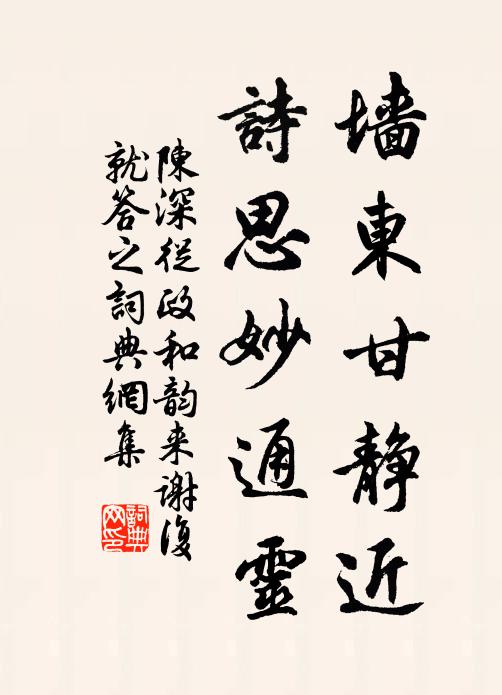 墙東甘静近
詩思妙通靈
陳深從政和韵来謝復
就答之詞典網集
詞典
网印